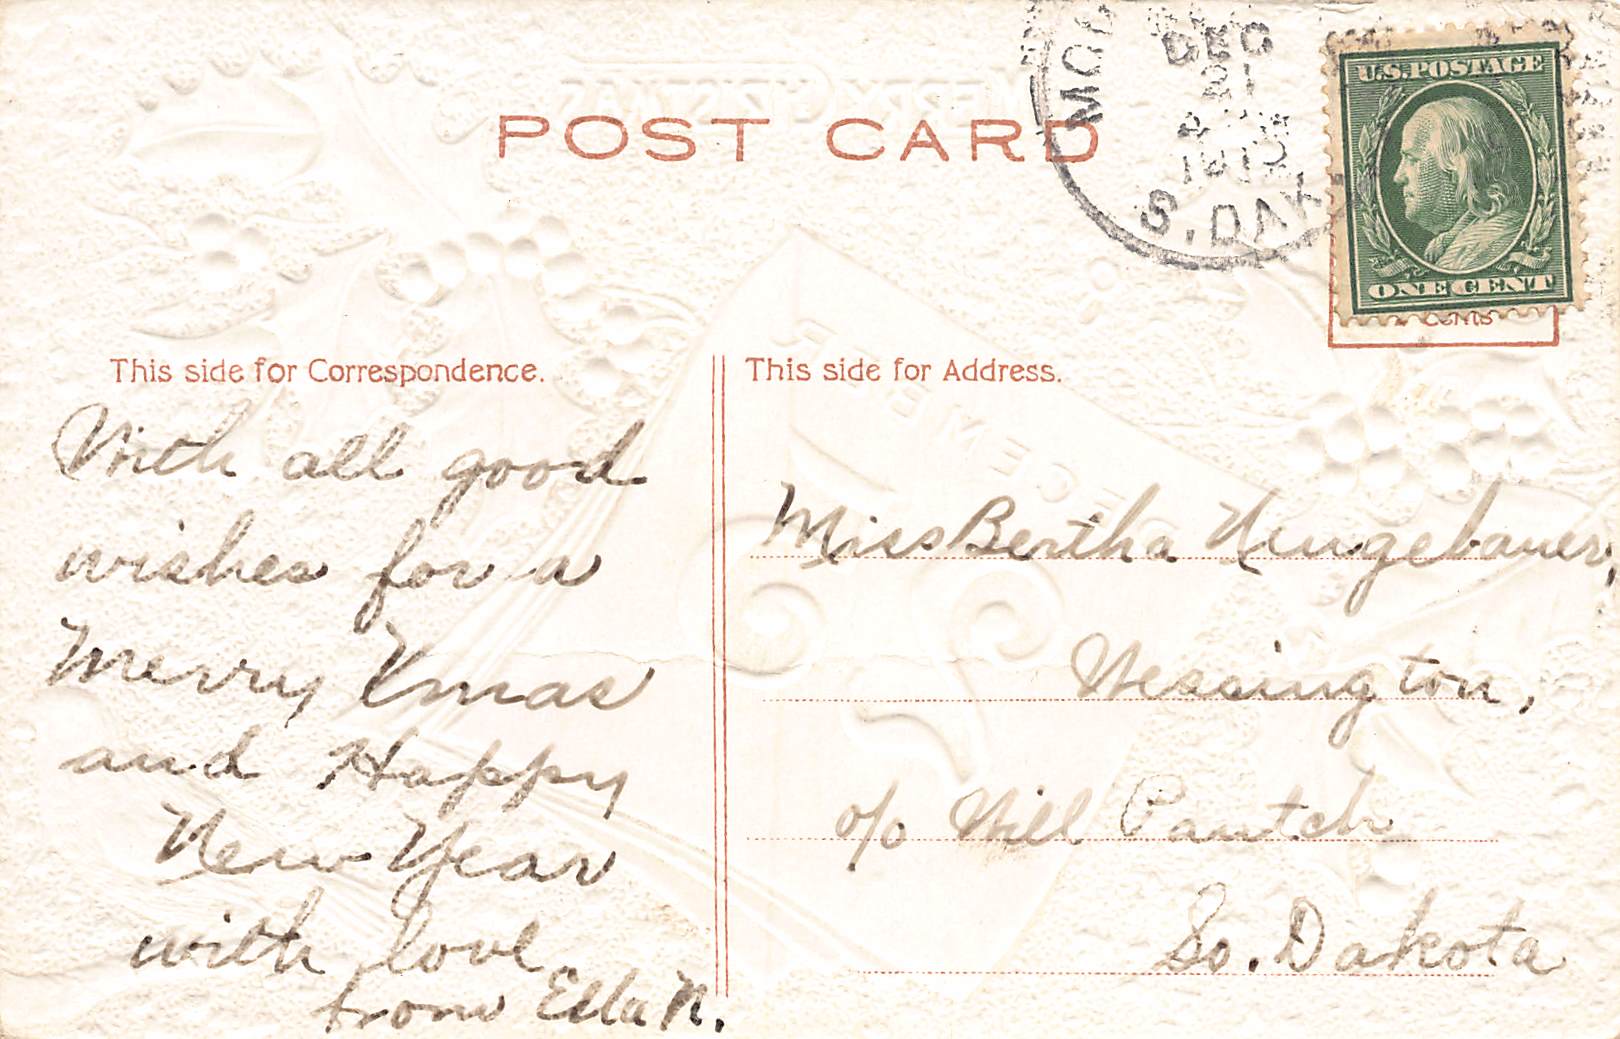 POST CARD
DEC
21
S. DAK
U.S. POSTAGE
ONE CENT
This side for Correspondence.
With all good
wishes for a
Merry Xmas
and Happy
New Year
with love
from Ella N.
This side for Address.
Miss Bertha Neugebauer,
Wessington,
c/o Will Pautch
So. Dakota